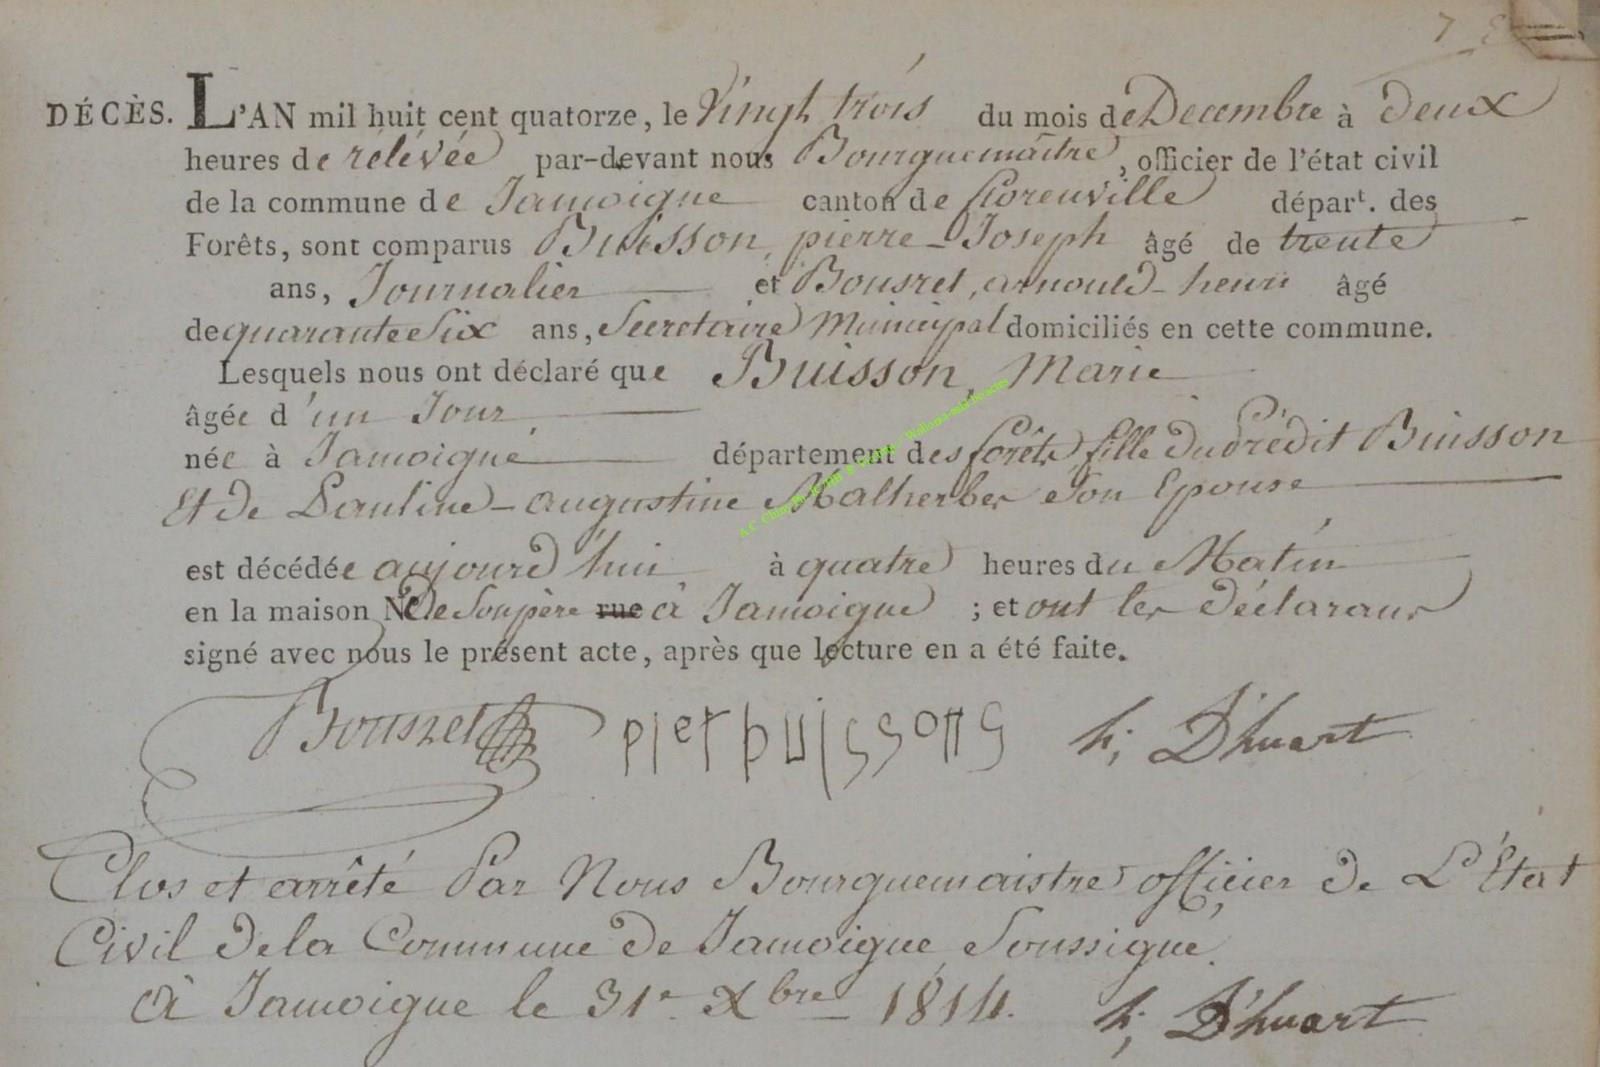 DÉCÈS. L'AN mil huit cent quatorze, le Vingt trois du mois de Decembre à deux
heures de rélévée par-devant nous Bourguemaître, officier de l'état civil
de la commune de Jamoigne canton de florenville départ. des
Forêts, sont comparus Buisson, pierre-Joseph âgé de trente
ans, Journalier et Bousret, arnould-henri âgé
de quarante Six ans, Secretaire Municipal domiciliés en cette commune.
Lesquels nous ont déclaré que Buisson, Marie
âgée d'un Jour
née à Jamoigne département des forêts, fille du prédit Buisson
Et de Pauline-augustine Malherbe, Son Epouse
est décédée aujourd'hui à quatre heures du Matin
en la maison de Son père rue à Jamoigne ; et ont les déclarans
signé avec nous le présent acte, après que lecture en a été faite.
Bousret pier buissong h; D'huart
Clos et arrêté Par Nous Bourguemaistre officier de L'État
Civil de la Commune de Jamoigne, Soussigné.
à Jamoigne le 31e Xbre 1814. h; D'huart